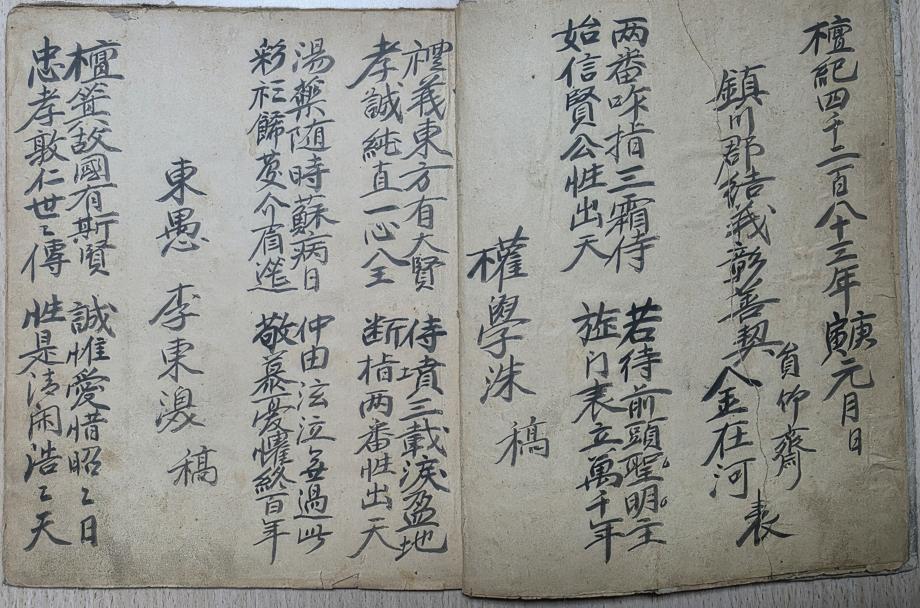 檀紀四千二百八十三年 庚寅元月日
鎭川郡結義彰善契 金在河
自仰齋 表
两番咋指三霜侍 若待前頭聖明主
始信賢公性出天 旌门表立萬千年
權學洙 稿
禮義東方有大賢 侍墳三載淚盈地
孝誠純直一心全 断指两番性出天
湯藥随時蘇病日 仲由泣泣無過此
彩衫歸 介眉筵 敬慕憂懼終百年
東愚 李東湲 稿
檀箕故國有斯賢 誠惟愛惜昭〻日
忠孝敦仁世〻傳 性是清闲浩〻天